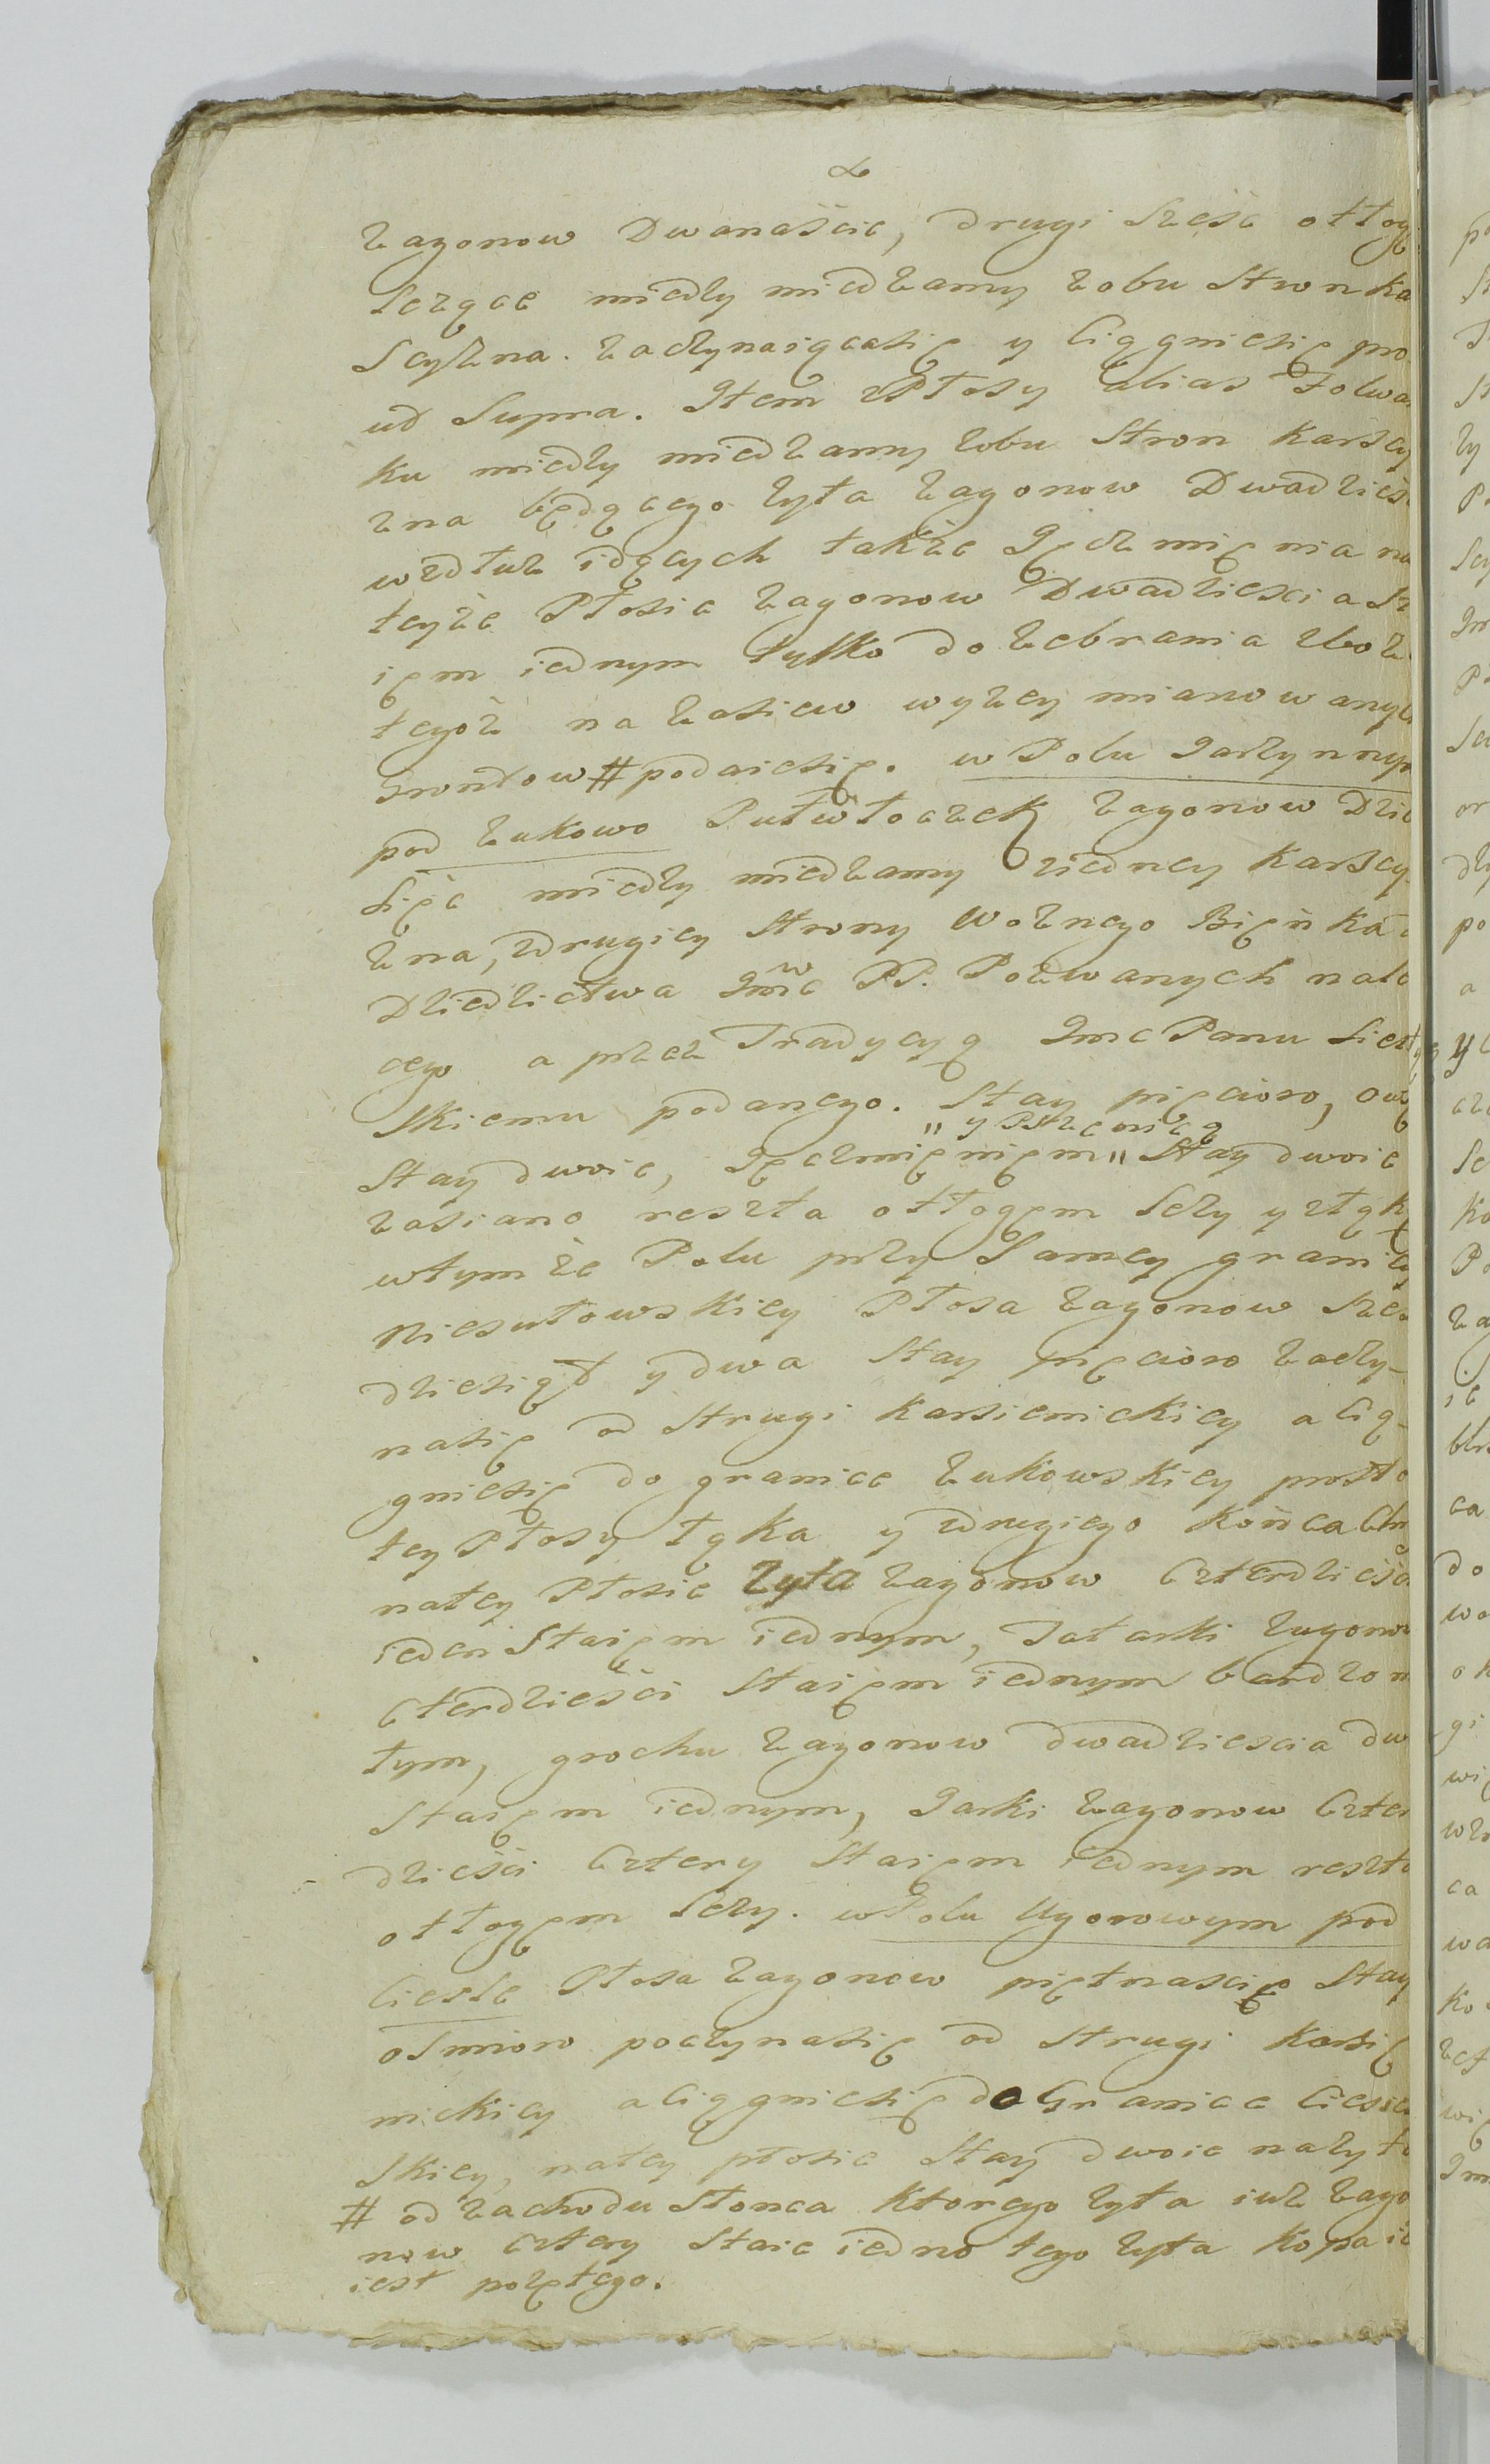 zagonow Dwanaście, drugi sześć ołtog
leżące miedzy miedzamy zobu Stron Ka
Scyzna. zaczynaiącasię y Ciągniesię pro
ud Supra. Item zPłosy alias Folwa
Ku miedzy miedzamy zobu Stron Karscy
zna będącego żyta zagonow Dwadzieś
wzdłuż idących także Jęczmięnia na
teyże Płosie zagonow Dwadziescia St
ięm iednym tylko do zebrania zboż
tegoż na zasiew wyżey mianowanych
Grontow # podaiesię. w Polu Jarzynnym
pod Łukowo Pułwłoczek zagonow Dzie
sięć miedzy miedzamy ziedney Karscy
zna, zdrugiey Strony Woznego Bięńka
Dziedzictwa Jmċw PP. Pozwanych nale
cego a przez Tradycyą Jmc Panu Sier
skiemu podanego. Stay pięcioro, ow
Stay dwoie, Jęczmięnięm " y Pszenicą " Stay dwoie
zasiano reszta ołtogęm leży y złąk
wtymże Polu przy Samey granicy
Niesułowskiey Płosa zagonow Szes
dziesiąt y dwa Stay pięcioro zaczy-
nasię od Strugi Karsienickiey a Cią-
gniesię do granice Łukowskiey prosto
tey Płosy Łąka y zdrugiego Końca
natey Płosie żyta zagonow Czterdzieśc
ieden Staięm iednym, Tatarki zagonow
Cterdzieści Staięm iednym bardzo m
łym, grochu zagonow dwadziescia dw
Staięm iednym, Jarki zagonow Czter
dzieści Cztery Staięm iednym reszta
ołtogęm leży. wPolu Ugorowym pod
Cieśle Płosa zagonow piętnascię Stay
osmioro poczynasię od Strugi Karsię
nickiey a Ciągniesię do Granice Ciesie
skiey, natey płosie Stay dwoie nażyt
# od zachodu Słonca Ktorego żyta iuż zago
now Cztery Staie iedno tego żyta Kopa ie
iest pożętego.